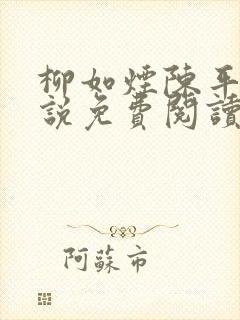 柳如煙陳平
說免費閱讀
阿蘇市